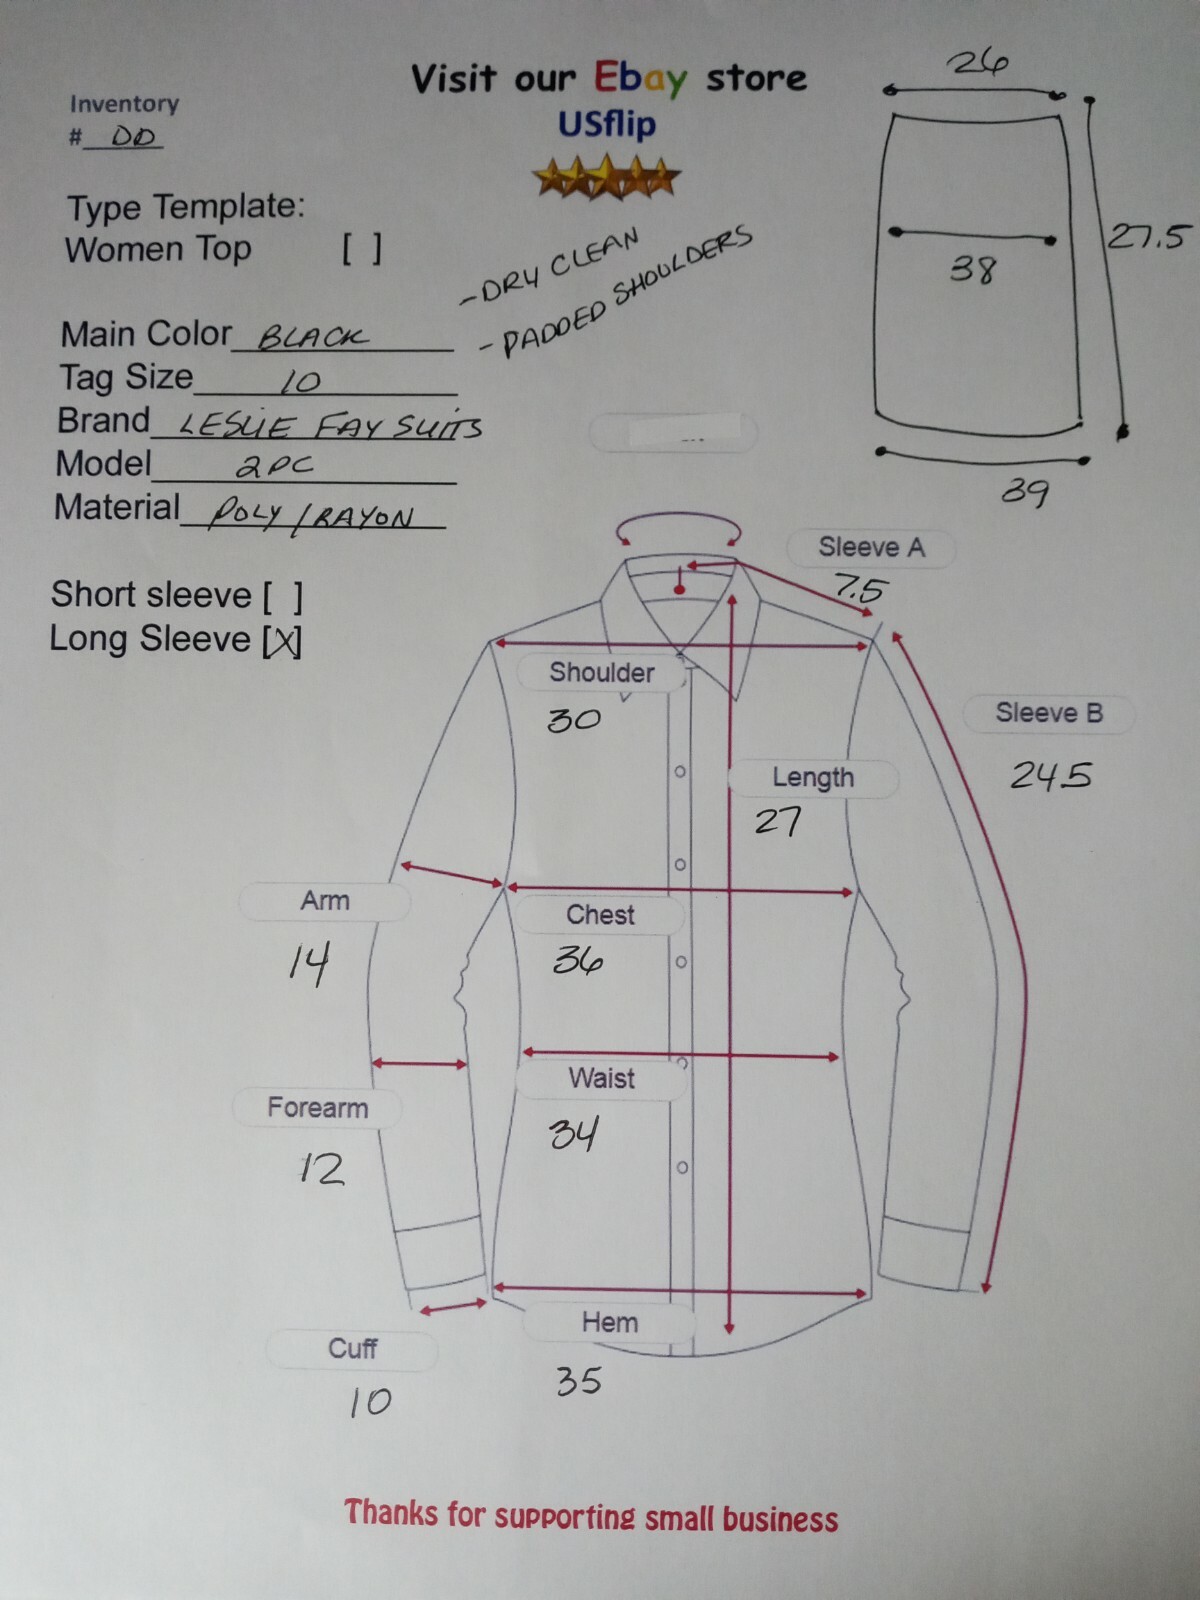 Visit our Ebay store
USflip
Inventory
# DD
Type Template:
Women Top [ ]
- DRY CLEAN
- PADDED SHOULDERS
Main Color BLACK
Tag Size 10
Brand LESLIE FAY SUITS
Model 2PC
Material POLY/RAYON
Short sleeve [ ]
Long Sleeve [X]
26
27.5
38
39
Sleeve A
7.5
Shoulder
30
Sleeve B
24.5
Length
27
Arm
14
Chest
36
Waist
34
Forearm
12
Hem
35
Cuff
10
Thanks for supporting small business